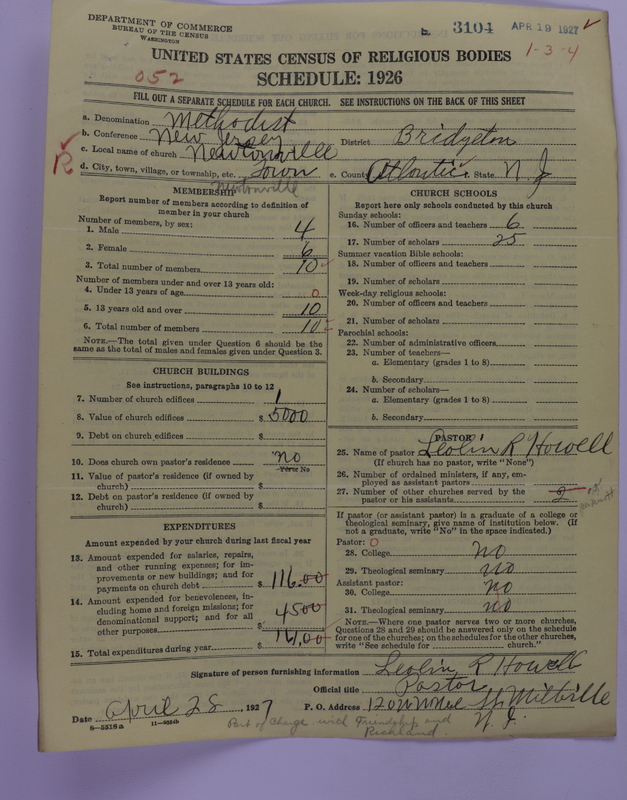 DEPARTMENT OF COMMERCE
BUREAU OF THE CENSUS
WASHINGTON
3104
APR 19 1927
1-3-4
UNITED STATES CENSUS OF RELIGIOUS BODIES
052
SCHEDULE: 1926
FILL OUT A SEPARATE SCHEDULE FOR EACH CHURCH. SEE INSTRUCTIONS ON THE BACK OF THIS SHEET
a. Denomination Methodist
b. Conference New Jersey District Bridgeton
R
c. Local name of church Newtonville
d. City, town, village, or township, etc. Town e. County Atlantic State N J
Newtonville
MEMBERSHIP
Report number of members according to definition of
member in your church
Number of members, by sex:
1. Male 4
2. Female 6
3. Total number of members 10
Number of members under and over 13 years old:
4. Under 13 years of age 0
5. 13 years old and over 10
6. Total number of members 10
NOTE.—The total given under Question 6 should be
same as the total of males and females given under Question 3.
CHURCH BUILDINGS
See instructions, paragraphs 10 to 12
7. Number of church edifices 1
8. Value of church edifices $ 5000
9. Debt on church edifices $
10. Does church own pastor's residence no
Yes or No
11. Value of pastor's residence (if owned by
church) $
12. Debt on pastor's residence (if owned by
church) $
EXPENDITURES
Amount expended by your church during last fiscal year
13. Amount expended for salaries, repairs,
and other running expenses; for im-
provements or new buildings; and for
payments on church debt $ 116.00
14. Amount expended for benevolences, in-
cluding home and foreign missions; for
denominational support; and for all
other purposes $ 4500
15. Total expenditures during year $ 161,00
CHURCH SCHOOLS
Report here only schools conducted by this church
Sunday schools:
16. Number of officers and teachers 6
17. Number of scholars 25
Summer vacation Bible schools:
18. Number of officers and teachers
19. Number of scholars
Week-day religious schools:
20. Number of officers and teachers
21. Number of scholars
Parochial schools:
22. Number of administrative officers
23. Number of teachers—
a. Elementary (grades 1 to 8)
b. Secondary
24. Number of scholars—
a. Elementary (grades 1 to 8)
b. Secondary
PASTOR
25. Name of pastor Leolin R Howell
(If church has no pastor, write "None")
26. Number of ordained ministers, if any, em-
ployed as assistant pastors
27. Number of other churches served by the
pastor or his assistants 2
If pastor (or assistant pastor) is a graduate of a college or
theological seminary, give name of institution below. (If
not a graduate, write "No" in the space indicated.)
Pastor: 0
28. College no
29. Theological seminary no
Assistant pastor:
30. College no
31. Theological seminary no
NOTE.—Where one pastor serves two or more churches,
Questions 28 and 29 should be answered only on the schedule
for one of the churches; on the schedules for the other churches,
write "See schedule for church."
Signature of person furnishing information Leolin R Howell
Official title Pastor
Date April 28, 1927 P. O. Address Millville
N. J.
8-5518a 11-9264b
Part of Charge with Friendship and
Richland